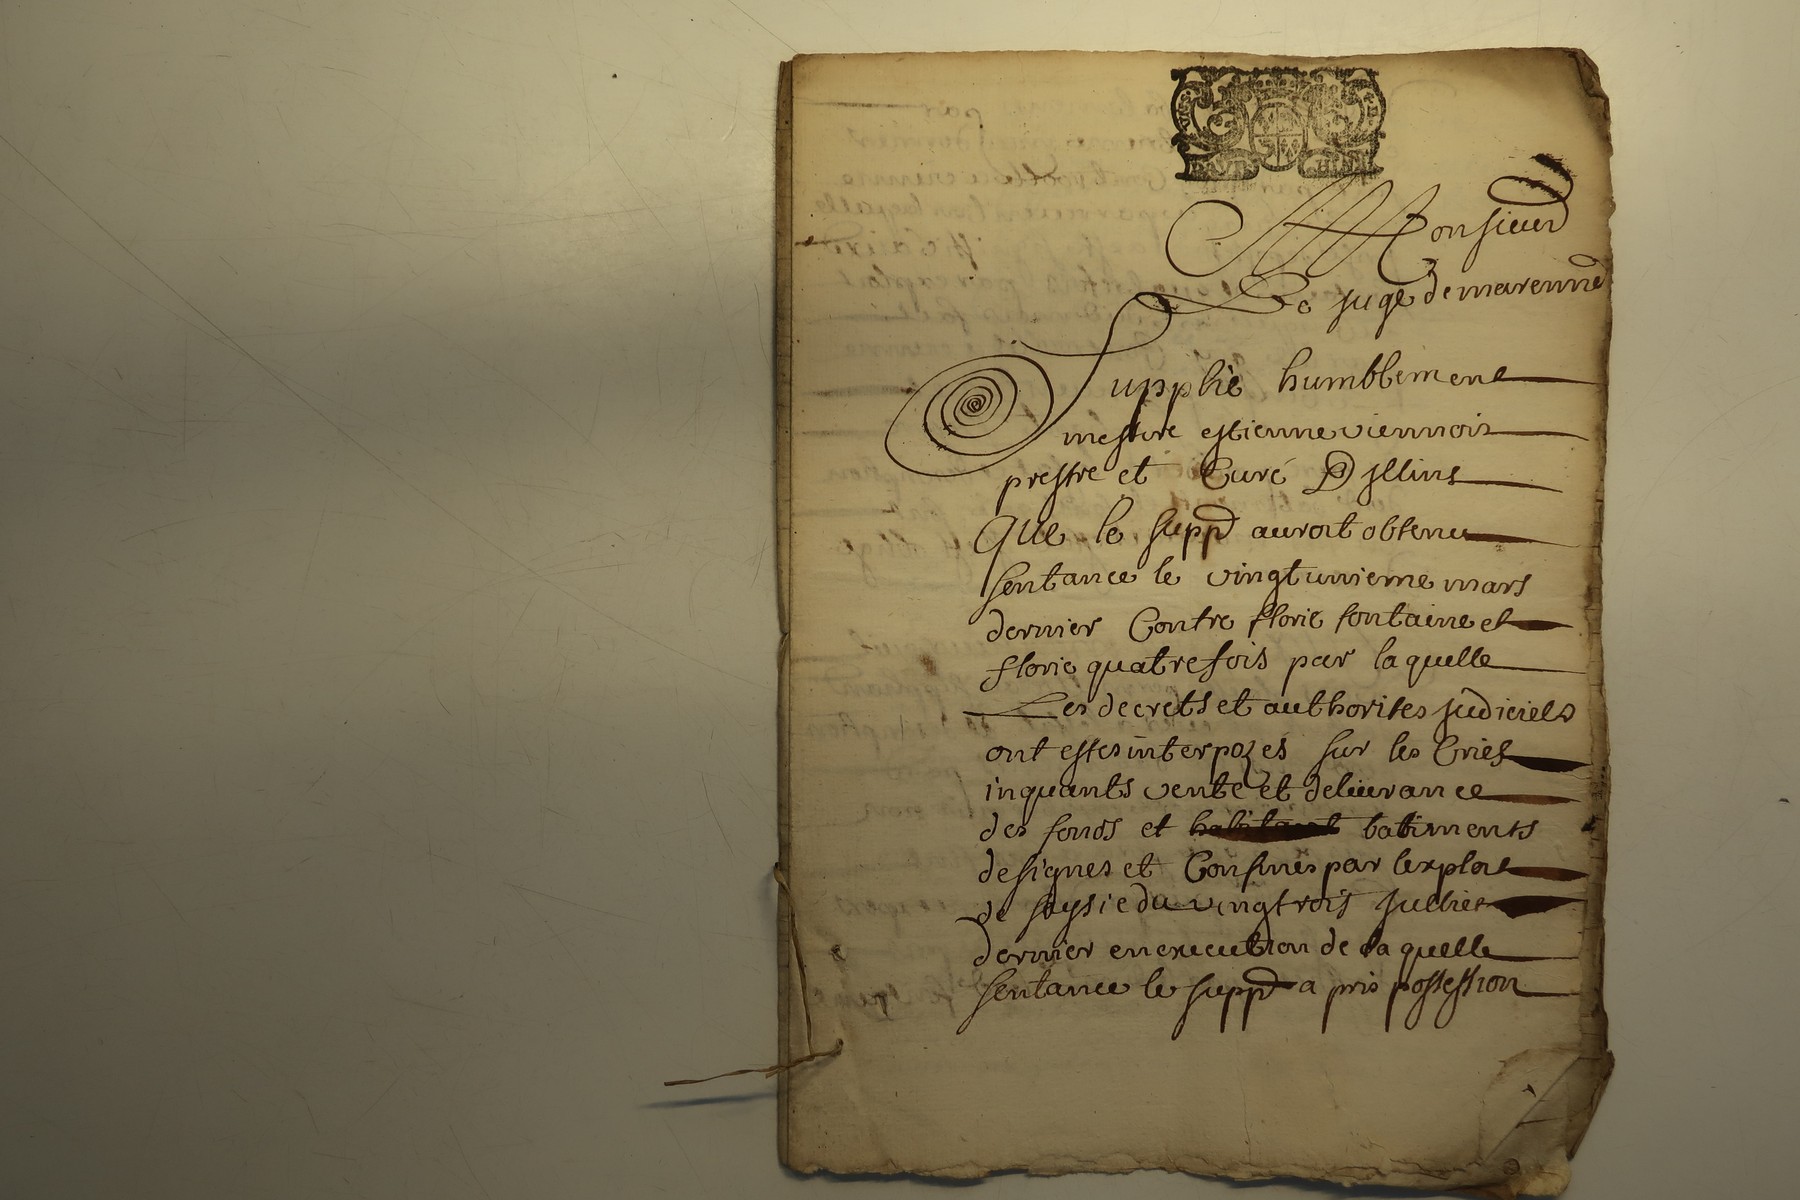 DAVPHINE
Monsieur
Le juge de marenne
Supplie humblement
messire estienne viennois
prestre et Curé D jllins
Que le supp.t auroit obtenu
sentance le vingtunieme mars
dernier Contre florie fontaine et
florie quatrefois par laquelle
Les decrets et authorites judiciels
ont estes interpozés sur les Criés
inquants vente et deliurance
des fonds et habitant batiments
designes et Confines par lexploit
de saysie du vingtrois Julliet
dernier en execution de la quelle
sentance le supp.t a pris possession